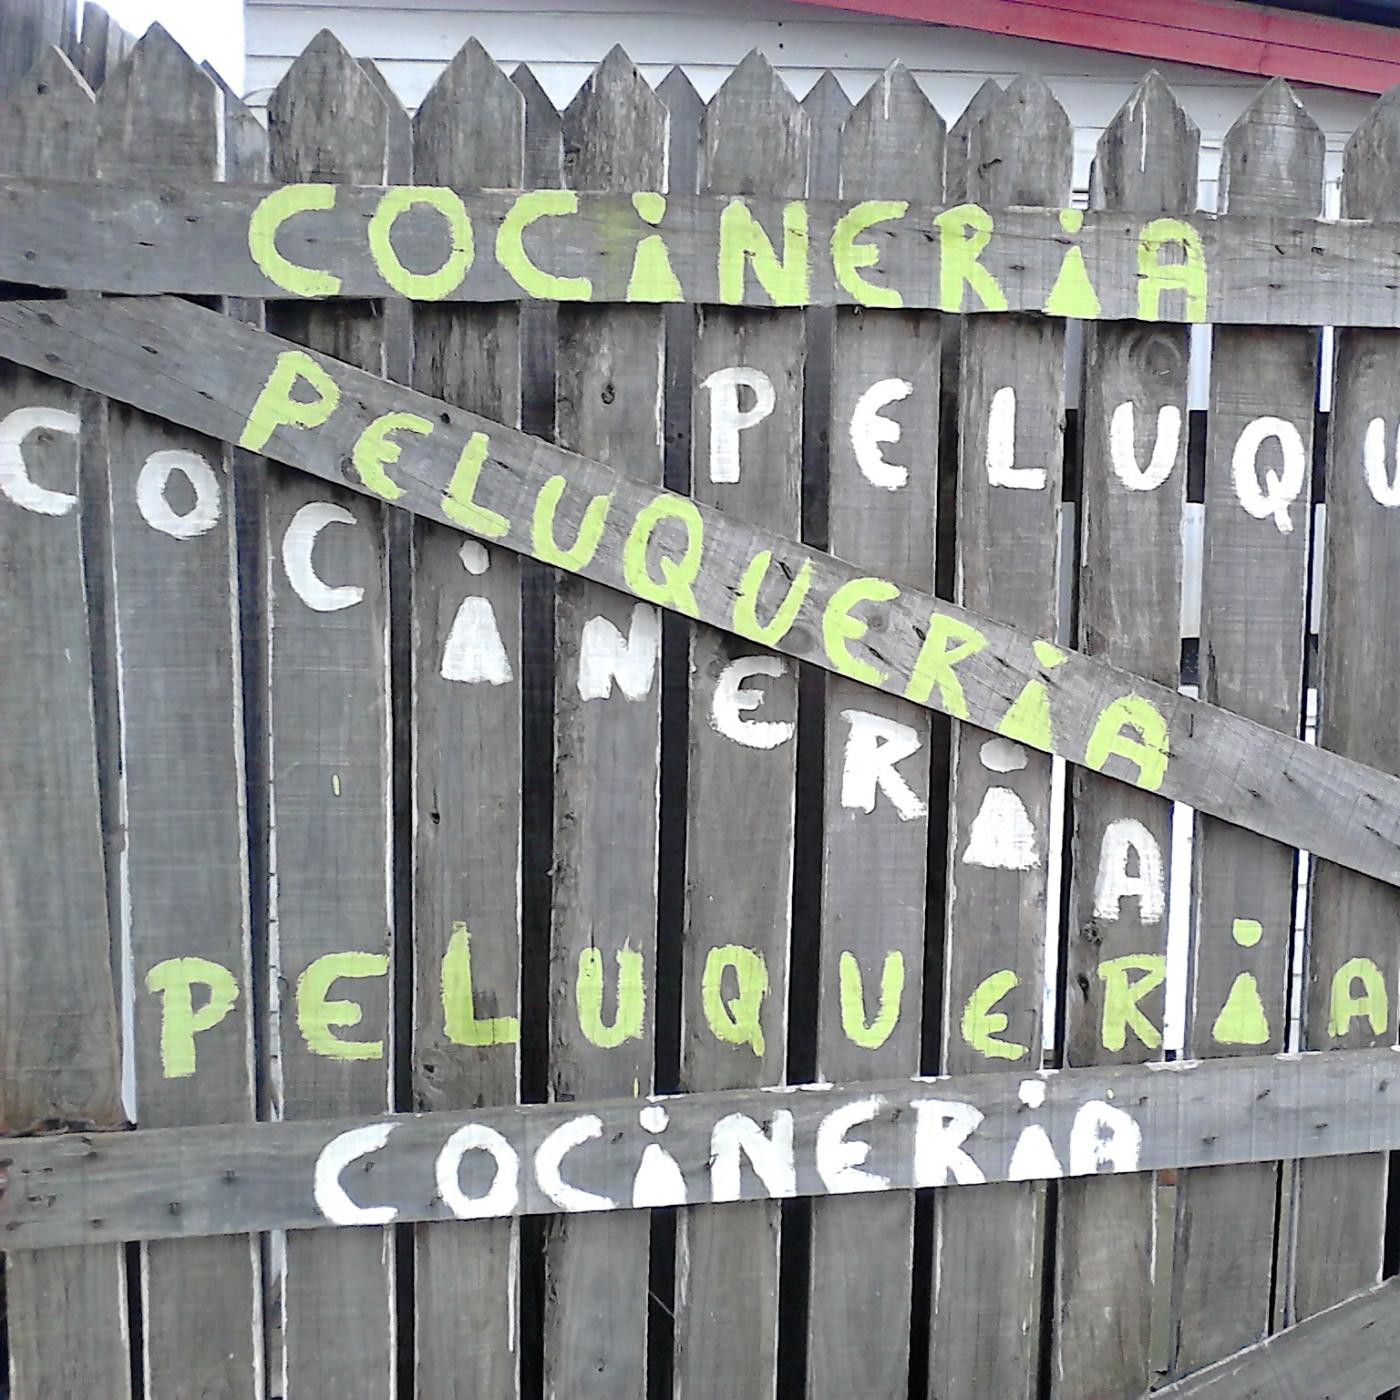 COCiNERiA
PELUQU
PELUQUERiA
COCiNERiA
PELUQUERiA
COCiNERiA